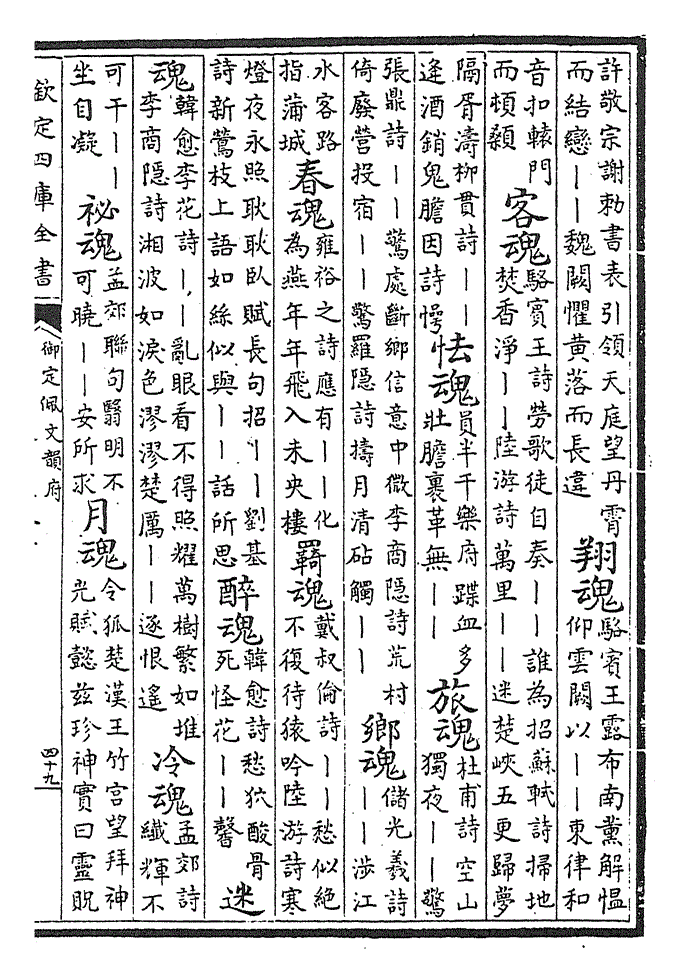 許敬宗謝勅書表引領天庭望丹霄
而結戀——魏闕懼黃落而長違
翔魂
駱賓王露布南薰解慍
仰雲闕以——東律和
音扣轅門
而頓顙
客魂
駱賓王詩勞歌徒自奏——誰為招蘇軾詩掃地
焚香淨——陸游詩萬里——迷楚峽五更歸夢
隔胥濤柳貫詩——
逢酒銷鬼膽因詩愕
怯魂
員半千樂府蹀血多
壯膽裹革無——
旅魂
杜甫詩空山
獨夜——驚
張鼎詩——驚處斷鄉信意中微李商隱詩荒村
倚廢營投宿——驚羅隱詩擣月清砧觸——
鄉魂
儲光羲詩
——涉江
水客路
指蒲城
春魂
雍裕之詩應有——化
為燕年年飛入未央樓
羇魂
戴叔倫詩——愁似絕
不復待猿吟陸游詩寒
燈夜永照耿耿臥賦長句招——劉基
詩新鶯枝上語如絲似與——話所思
醉魂
韓愈詩愁狖酸骨
死怪花——馨
迷
魂
韓愈李花詩——亂眼看不得照耀萬樹繁如堆
李商隱詩湘波如淚色漻漻楚厲——逐恨遙
冷魂
孟郊詩
纖輝不
可干———
坐自凝
祕魂
孟郊聯句翳明不
可曉——安所求
月魂
令狐楚漢王竹宮望拜神
光賦懿茲珍神實曰靈貺
欽定四庫全書
御定佩文韻府
四十九